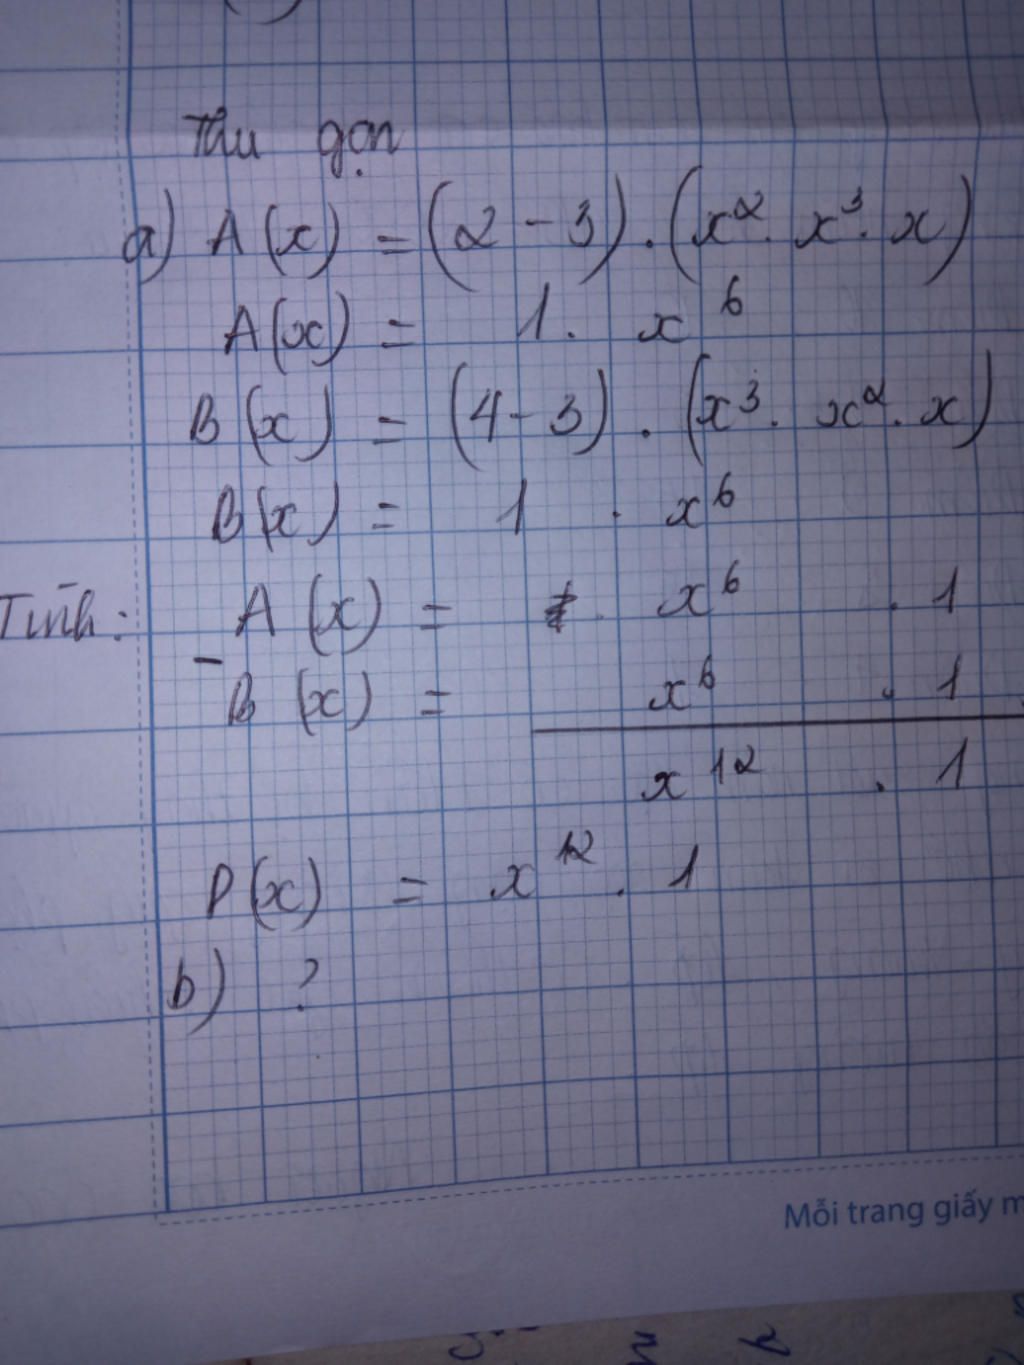 Thu gọn
a) A(x) = (2 - 3) . (x² . x³ . x)
A(x) = 1 . x⁶
B(x) = (4 - 3) . (x³ . x² . x)
B(x) = 1 . x⁶
Tính: A(x) = x⁶ . 1
- B(x) = x⁶ . 1
x¹² . 1
P(x) = x¹² . 1
b) ?
Mỗi trang giấy m